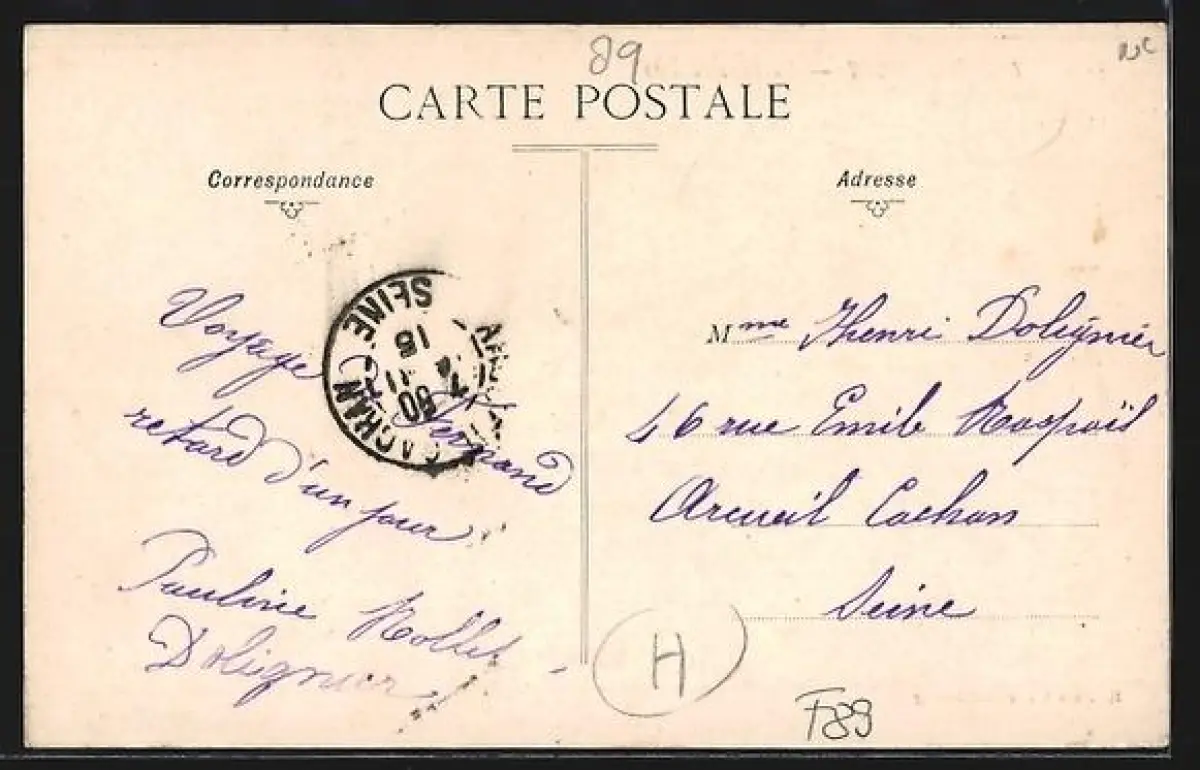 89
CARTE POSTALE
Correspondance
Adresse
Voyage Fernand
retard d'un jour
Pauline Rollet
Dolignier
CACHAN
SEINE
Mme Henri Dolignier
46 rue Emile Raspail
Arcueil Cachan
Seine
H
F89